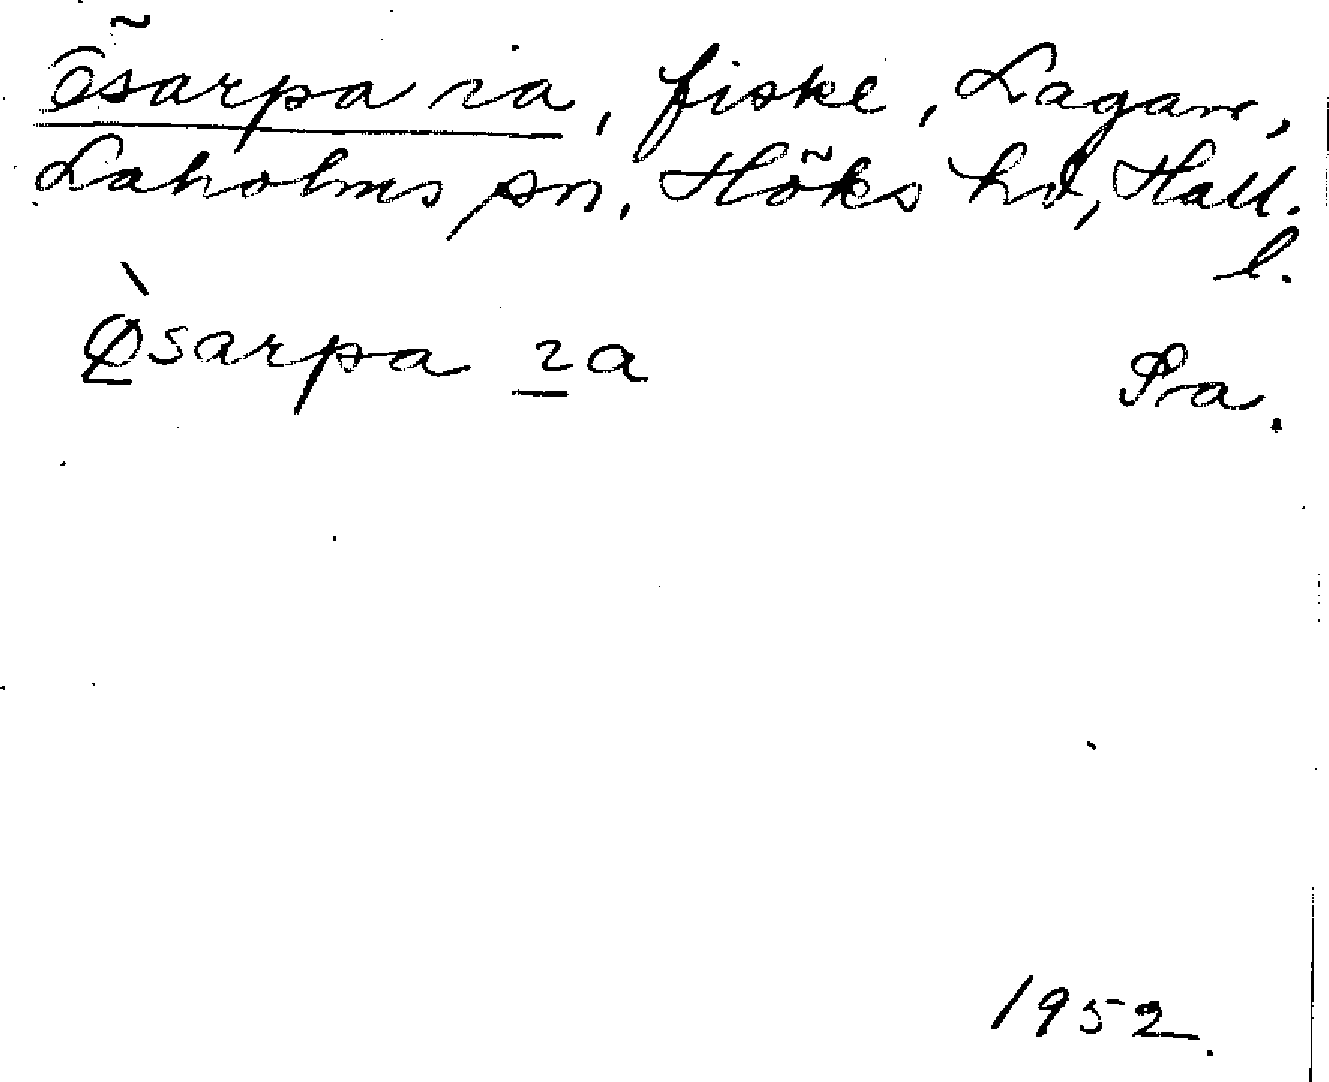 Ösarpa ra, fiske, Lagan,
Laholms sn, Höks hd, Hall.
l.
Ø̱̀sarpa ɿ̱a
Pa.
1952.